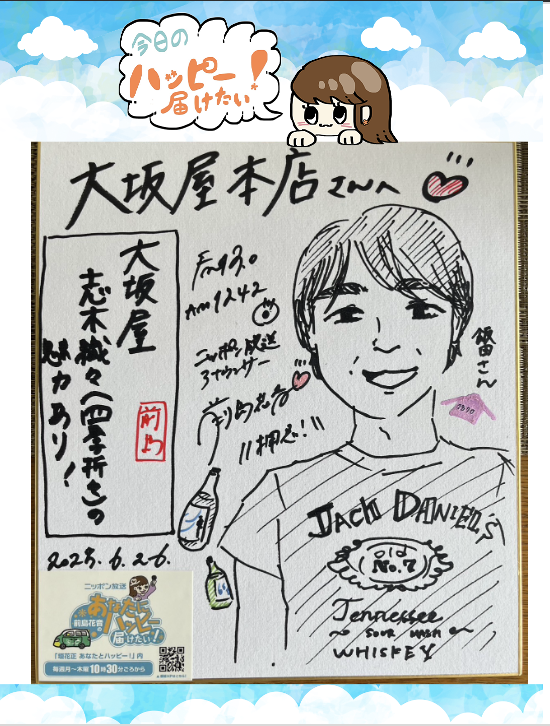 今日の
ハッピー!
届けたい
大坂屋本店さんへ
大坂屋
志木織々(四季折々)の
魅力あり!
前島
FM93.0
AM1242
ニッポン放送
アナウンサー
"押忍!"
飯田さん
JACK DANIEL'S
Old
No.7
Tennessee
SOUR MASH
WHISKEY
2025.6.26.
ニッポン放送
前島花音の
あなたにハッピー
届けたい!
「櫻花正 あなたとハッピー!」内
毎週月〜木曜10時30分ごろから